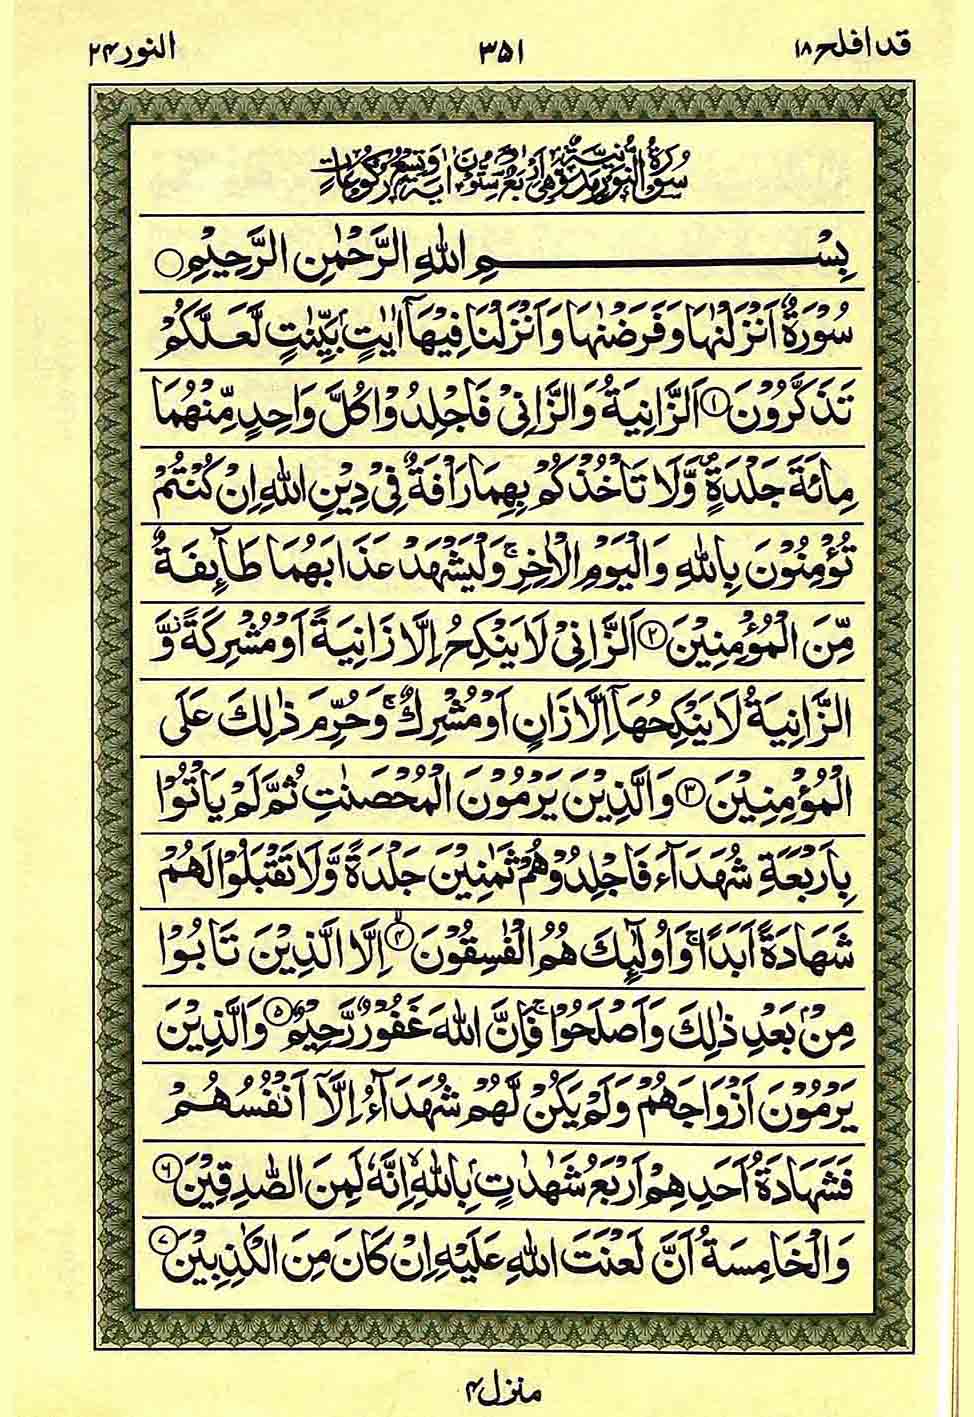 قد افلح ۱۸
۳۵۱
النور ۲۴
سُوْرَةُ النُّوْرِ مَدَنِيَّةٌ وَّهِيَ اَرْبَعٌ وَّسِتُّوْنَ اٰيَةً وَّتِسْعُ رُكُوْعَاتٍ
بِسْمِ اللّٰهِ الرَّحْمٰنِ الرَّحِيْمِ
سُوْرَةٌ اَنْزَلْنٰهَا وَفَرَضْنٰهَا وَاَنْزَلْنَا فِيْهَاۤ اٰيٰتٍۭ بَيِّنٰتٍ لَّعَلَّكُمْ
تَذَكَّرُوْنَ ۝۱ اَلزَّانِيَةُ وَالزَّانِيْ فَاجْلِدُوْا كُلَّ وَاحِدٍ مِّنْهُمَا
مِائَةَ جَلْدَةٍ۪ وَّلَا تَاْخُذْكُمْ بِهِمَا رَاْفَةٌ فِيْ دِيْنِ اللّٰهِ اِنْ كُنْتُمْ
تُؤْمِنُوْنَ بِاللّٰهِ وَالْيَوْمِ الْاٰخِرِۚ وَلْيَشْهَدْ عَذَابَهُمَا طَآئِفَةٌ
مِّنَ الْمُؤْمِنِيْنَ ۝۲ اَلزَّانِيْ لَا يَنْكِحُ اِلَّا زَانِيَةً اَوْ مُشْرِكَةً ؗ وَّ
الزَّانِيَةُ لَا يَنْكِحُهَاۤ اِلَّا زَانٍ اَوْ مُشْرِكٌۚ وَحُرِّمَ ذٰلِكَ عَلَى
الْمُؤْمِنِيْنَ ۝۳ وَالَّذِيْنَ يَرْمُوْنَ الْمُحْصَنٰتِ ثُمَّ لَمْ يَاْتُوْا
بِاَرْبَعَةِ شُهَدَآءَ فَاجْلِدُوْهُمْ ثَمٰنِيْنَ جَلْدَةً وَّلَا تَقْبَلُوْا لَهُمْ
شَهَادَةً اَبَدًاۚ وَاُولٰٓئِكَ هُمُ الْفٰسِقُوْنَ ۝۴ۙ اِلَّا الَّذِيْنَ تَابُوْا
مِنْۢ بَعْدِ ذٰلِكَ وَاَصْلَحُوْاۚ فَاِنَّ اللّٰهَ غَفُوْرٌ رَّحِيْمٌ ۝۵ وَالَّذِيْنَ
يَرْمُوْنَ اَزْوَاجَهُمْ وَلَمْ يَكُنْ لَّهُمْ شُهَدَآءُ اِلَّاۤ اَنْفُسُهُمْ
فَشَهَادَةُ اَحَدِهِمْ اَرْبَعُ شَهٰدٰتٍۭ بِاللّٰهِۙ اِنَّهٗ لَمِنَ الصّٰدِقِيْنَ ۝۶
وَالْخَامِسَةُ اَنَّ لَعْنَتَ اللّٰهِ عَلَيْهِ اِنْ كَانَ مِنَ الْكٰذِبِيْنَ ۝۷
منزل ۴